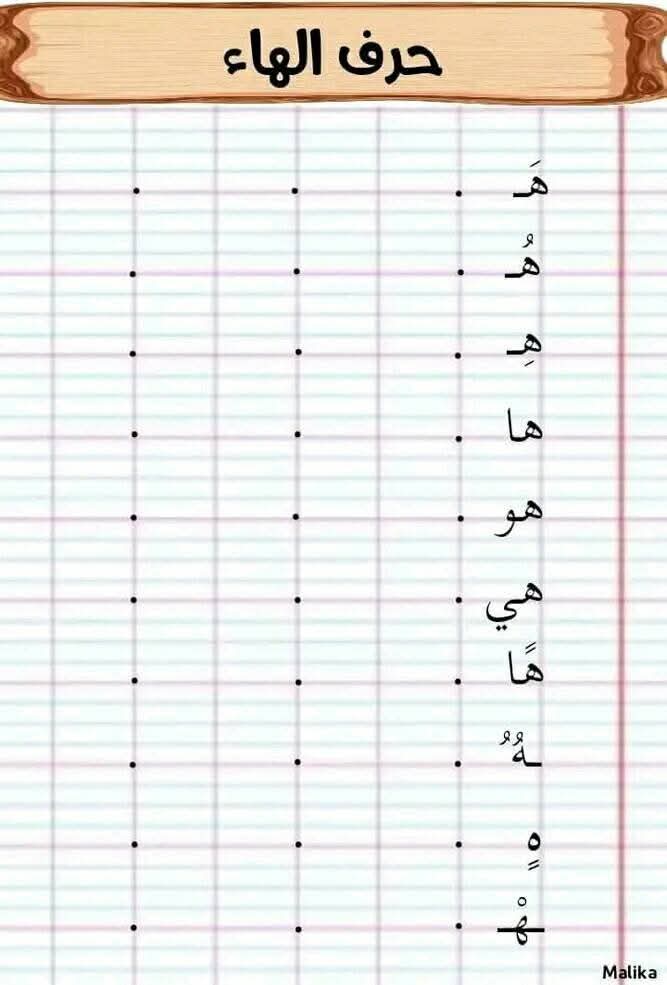 حرف الهاء
هَـ . . .
هُـ . . .
هِـ . . .
ها . . .
هو . . .
هي . . .
هًا . . .
ـهٌ . . .
هٍ . . .
ـهْـ . . .
Malika